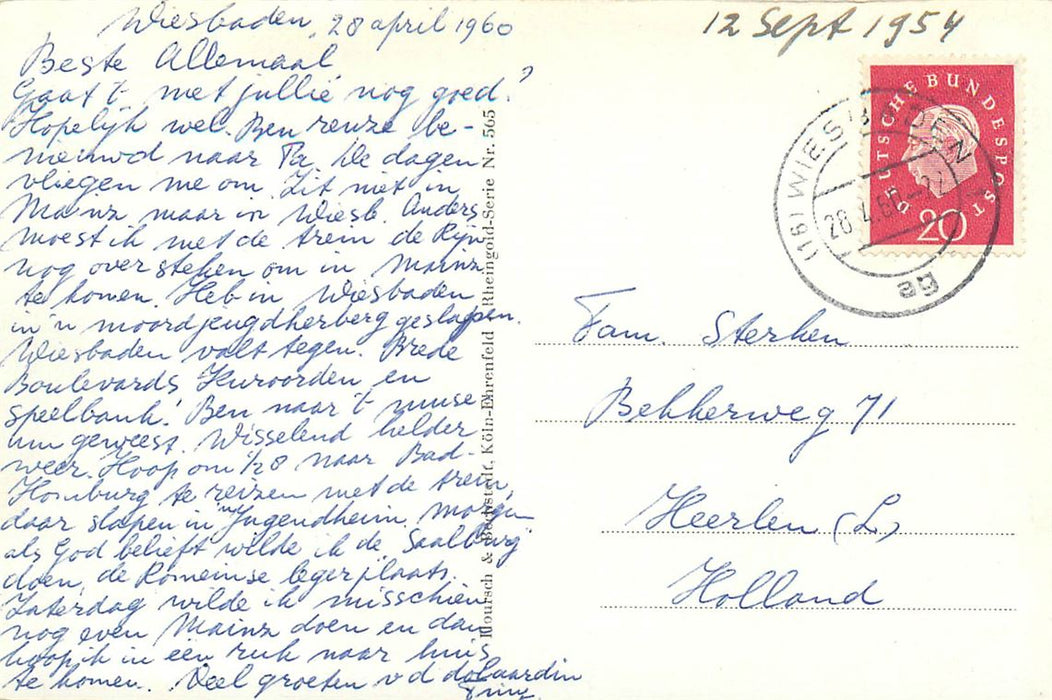 Wiesbaden, 28 april 1960
Beste Allemaal
Gaat 't met jullie nog goed?
Hopelijk wel. Ben reuze be-
nieuwd naar Pa. De dagen
vliegen me om. Zit niet in
Mainz maar in Wiesb. Anders
moest ik met de trein de Rijn
nog oversteken om in Mainz
te komen. Heb in Wiesbaden
in 'n moordjeugdherberg geslapen.
Wiesbaden valt tegen. Brede
Boulevards Kuroorden en
speelbank! Ben naar 't muse
um geweest. Wisselend helder
weer. Hoop om ½8 naar Bad-
Homburg te reizen met de trein,
daar slapen in 'n Jugendheim. Morgen
als God belieft wilde ik de Saalburg
doen, de Romeinse legerplaats.
Zaterdag wilde ik misschien
nog even Mainz doen en dan
hoop ik in een ruk naar huis
te komen. Veel groeten v d
Hoursch & Bechstedt, Köln-Ehrenfeld Rheingold-Serie Nr. 565
12 Sept 1954
DEUTSCHE BUNDESPOST
20
(16) WIESBADEN
28.4.60
Fam. Sterken
Bekkerweg 71
Heerlen (L.)
Holland